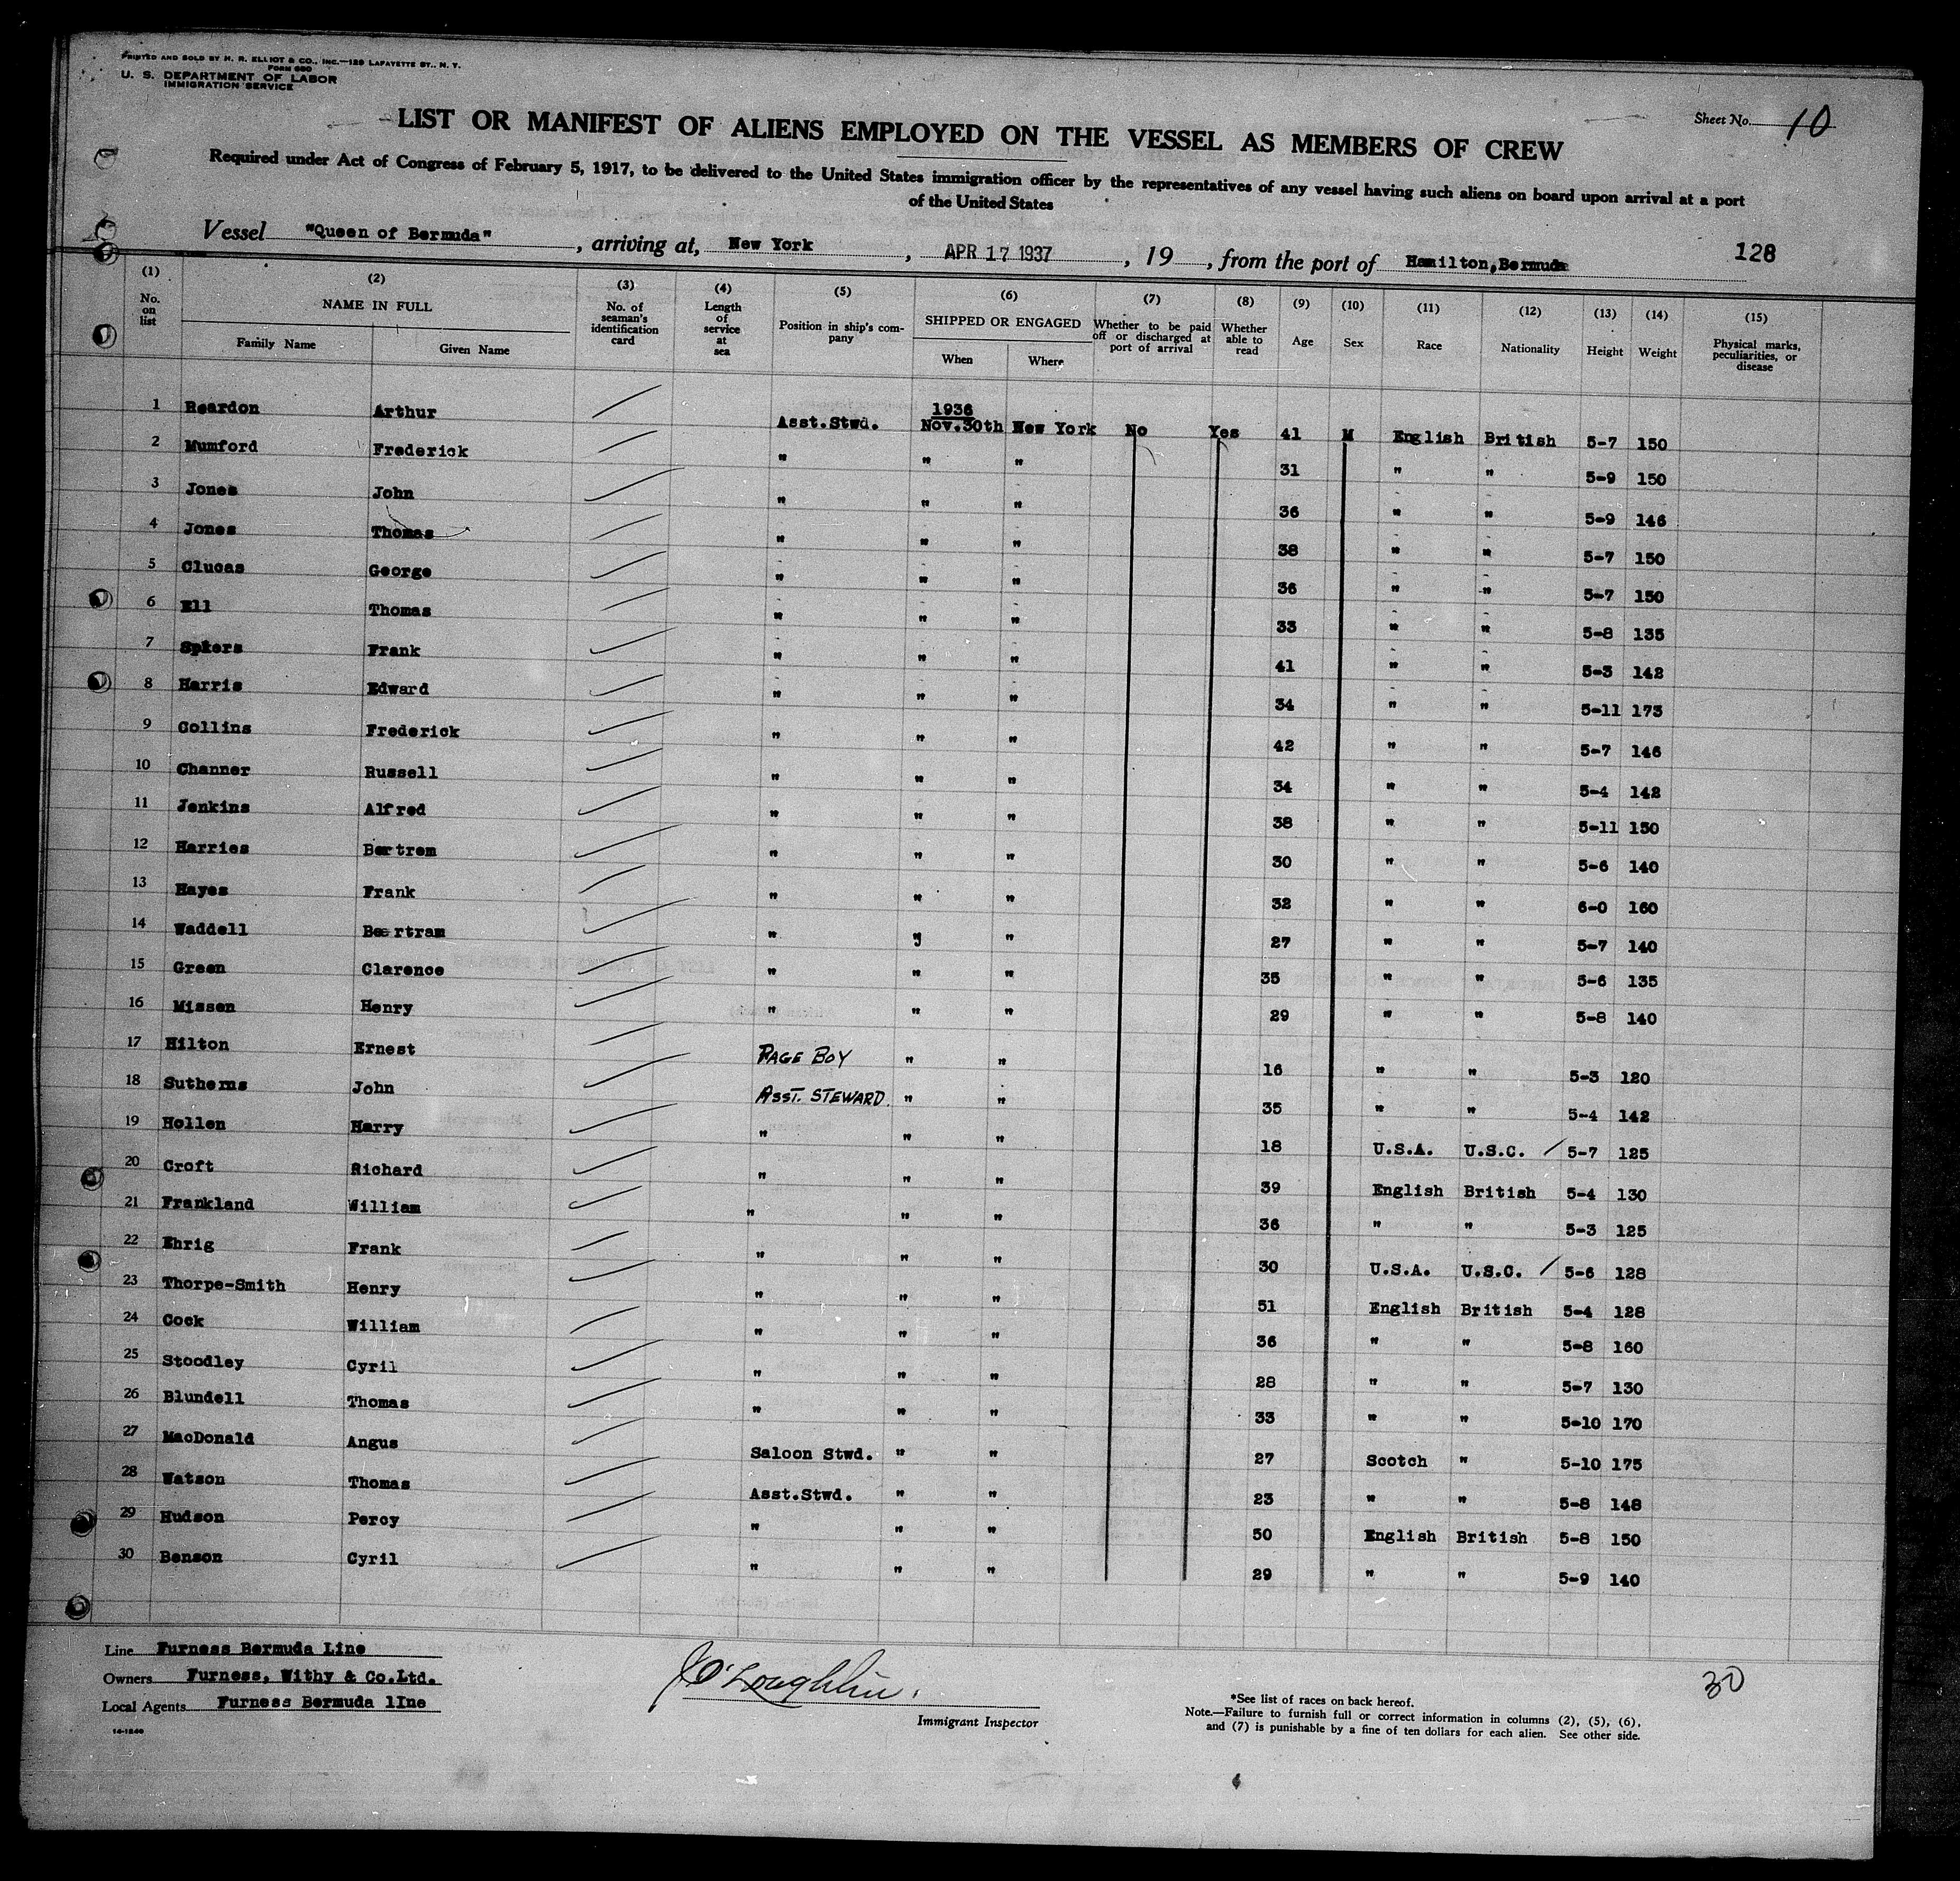 PRINTED AND SOLD BY H. R. ELLIOT & CO., INC.—129 LAFAYETTE ST., N. Y.
FORM 680
U. S. DEPARTMENT OF LABOR
IMMIGRATION SERVICE
Sheet No. 10
LIST OR MANIFEST OF ALIENS EMPLOYED ON THE VESSEL AS MEMBERS OF CREW
Required under Act of Congress of February 5, 1917, to be delivered to the United States immigration officer by the representatives of any vessel having such aliens on board upon arrival at a port
of the United States
Vessel "Queen of Bermuda", arriving at, New York, APR 17 1937, 19, from the port of Hamilton, Bermuda 128
(1) No. on list (2) NAME IN FULL Family Name Given Name (3) No. of seaman's identification card (4) Length of service at sea (5) Position in ship's company (6) SHIPPED OR ENGAGED When Where (7) Whether to be paid off or discharged at port of arrival (8) Whether able to read (9) Age (10) Sex (11) Race (12) Nationality (13) Height (14) Weight (15) Physical marks, peculiarities, or disease
1 Reardon Arthur Asst.Stwd. 1936 Nov.30th New York No Yes 41 M English British 5-7 150
2 Mumford Frederick " " " 31 " " 5-9 150
3 Jones John " " " 36 " " 5-9 146
4 Jones Thomas " " " 38 " " 5-7 150
5 Clucas George " " " 36 " " 5-7 150
6 Ell Thomas " " " 33 " " 5-8 135
7 Frank " " " 41 " " 5-3 142
8 Harris Edward " " " 34 " " 5-11 173
9 Collins Frederick " " " 42 " " 5-7 146
10 Channer Russell " " " 34 " " 5-4 142
11 Jenkins Alfred " " " 38 " " 5-11 150
12 Harries Bertrem " " " 30 " " 5-6 140
13 Hayes Frank " " " 32 " " 6-0 160
14 Waddell Bertram " " " 27 " " 5-7 140
15 Green Clarence " " " 35 " " 5-6 135
16 Missen Henry " " " 29 " " 5-8 140
17 Hilton Ernest PAGE BOY " " 16 " " 5-3 120
18 Suthems John ASST. STEWARD. " " 35 " " 5-4 142
19 Hollen Harry " " " 18 U.S.A. U.S.C. / 5-7 125
20 Croft Richard " " " 39 English British 5-4 130
21 Frankland William " " " 36 " " 5-3 125
22 Ehrig Frank " " " 30 U.S.A. U.S.C. / 5-6 128
23 Thorpe-Smith Henry " " " 51 English British 5-4 128
24 Cock William " " " 36 " " 5-8 160
25 Stoodley Cyril " " " 28 " " 5-7 130
26 Blundell Thomas " " " 33 " " 5-10 170
27 MacDonald Angus Saloon Stwd. " " 27 Scotch " 5-10 175
28 Watson Thomas Asst.Stwd. " " 23 " " 5-8 148
29 Hudson Percy " " " 50 English British 5-8 150
30 Benson Cyril " " " 29 " " 5-9 140
Line Furness Bermuda Line
Owners Furness, Withy & Co.Ltd.
Local Agents Furness Bermuda lIne
14-1240
J O'Loughlin.
Immigrant Inspector
*See list of races on back hereof.
Note.—Failure to furnish full or correct information in columns (2), (5), (6),
and (7) is punishable by a fine of ten dollars for each alien. See other side.
30